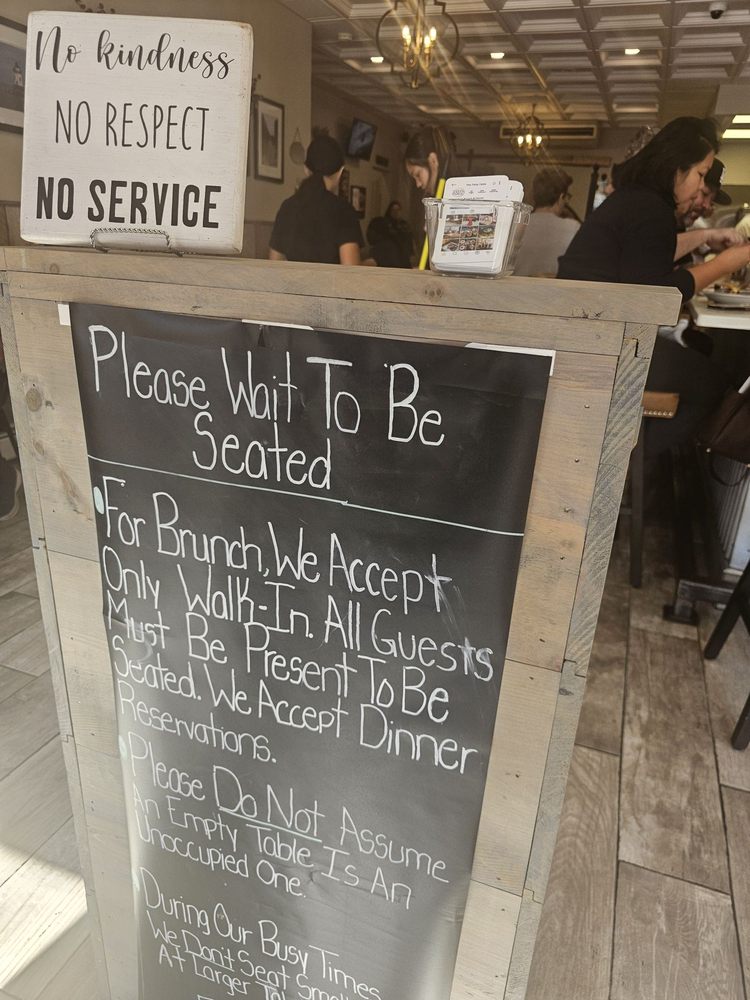 No kindness
NO RESPECT
NO SERVICE
Please Wait To Be
Seated
For Brunch, We Accept
Only Walk-In. All Guests
Must Be Present To Be
Seated. We Accept Dinner
Reservations.
Please Do Not Assume
An Empty Table Is An
Unoccupied One.
During Our Busy Times
We Don't Seat
At Larger